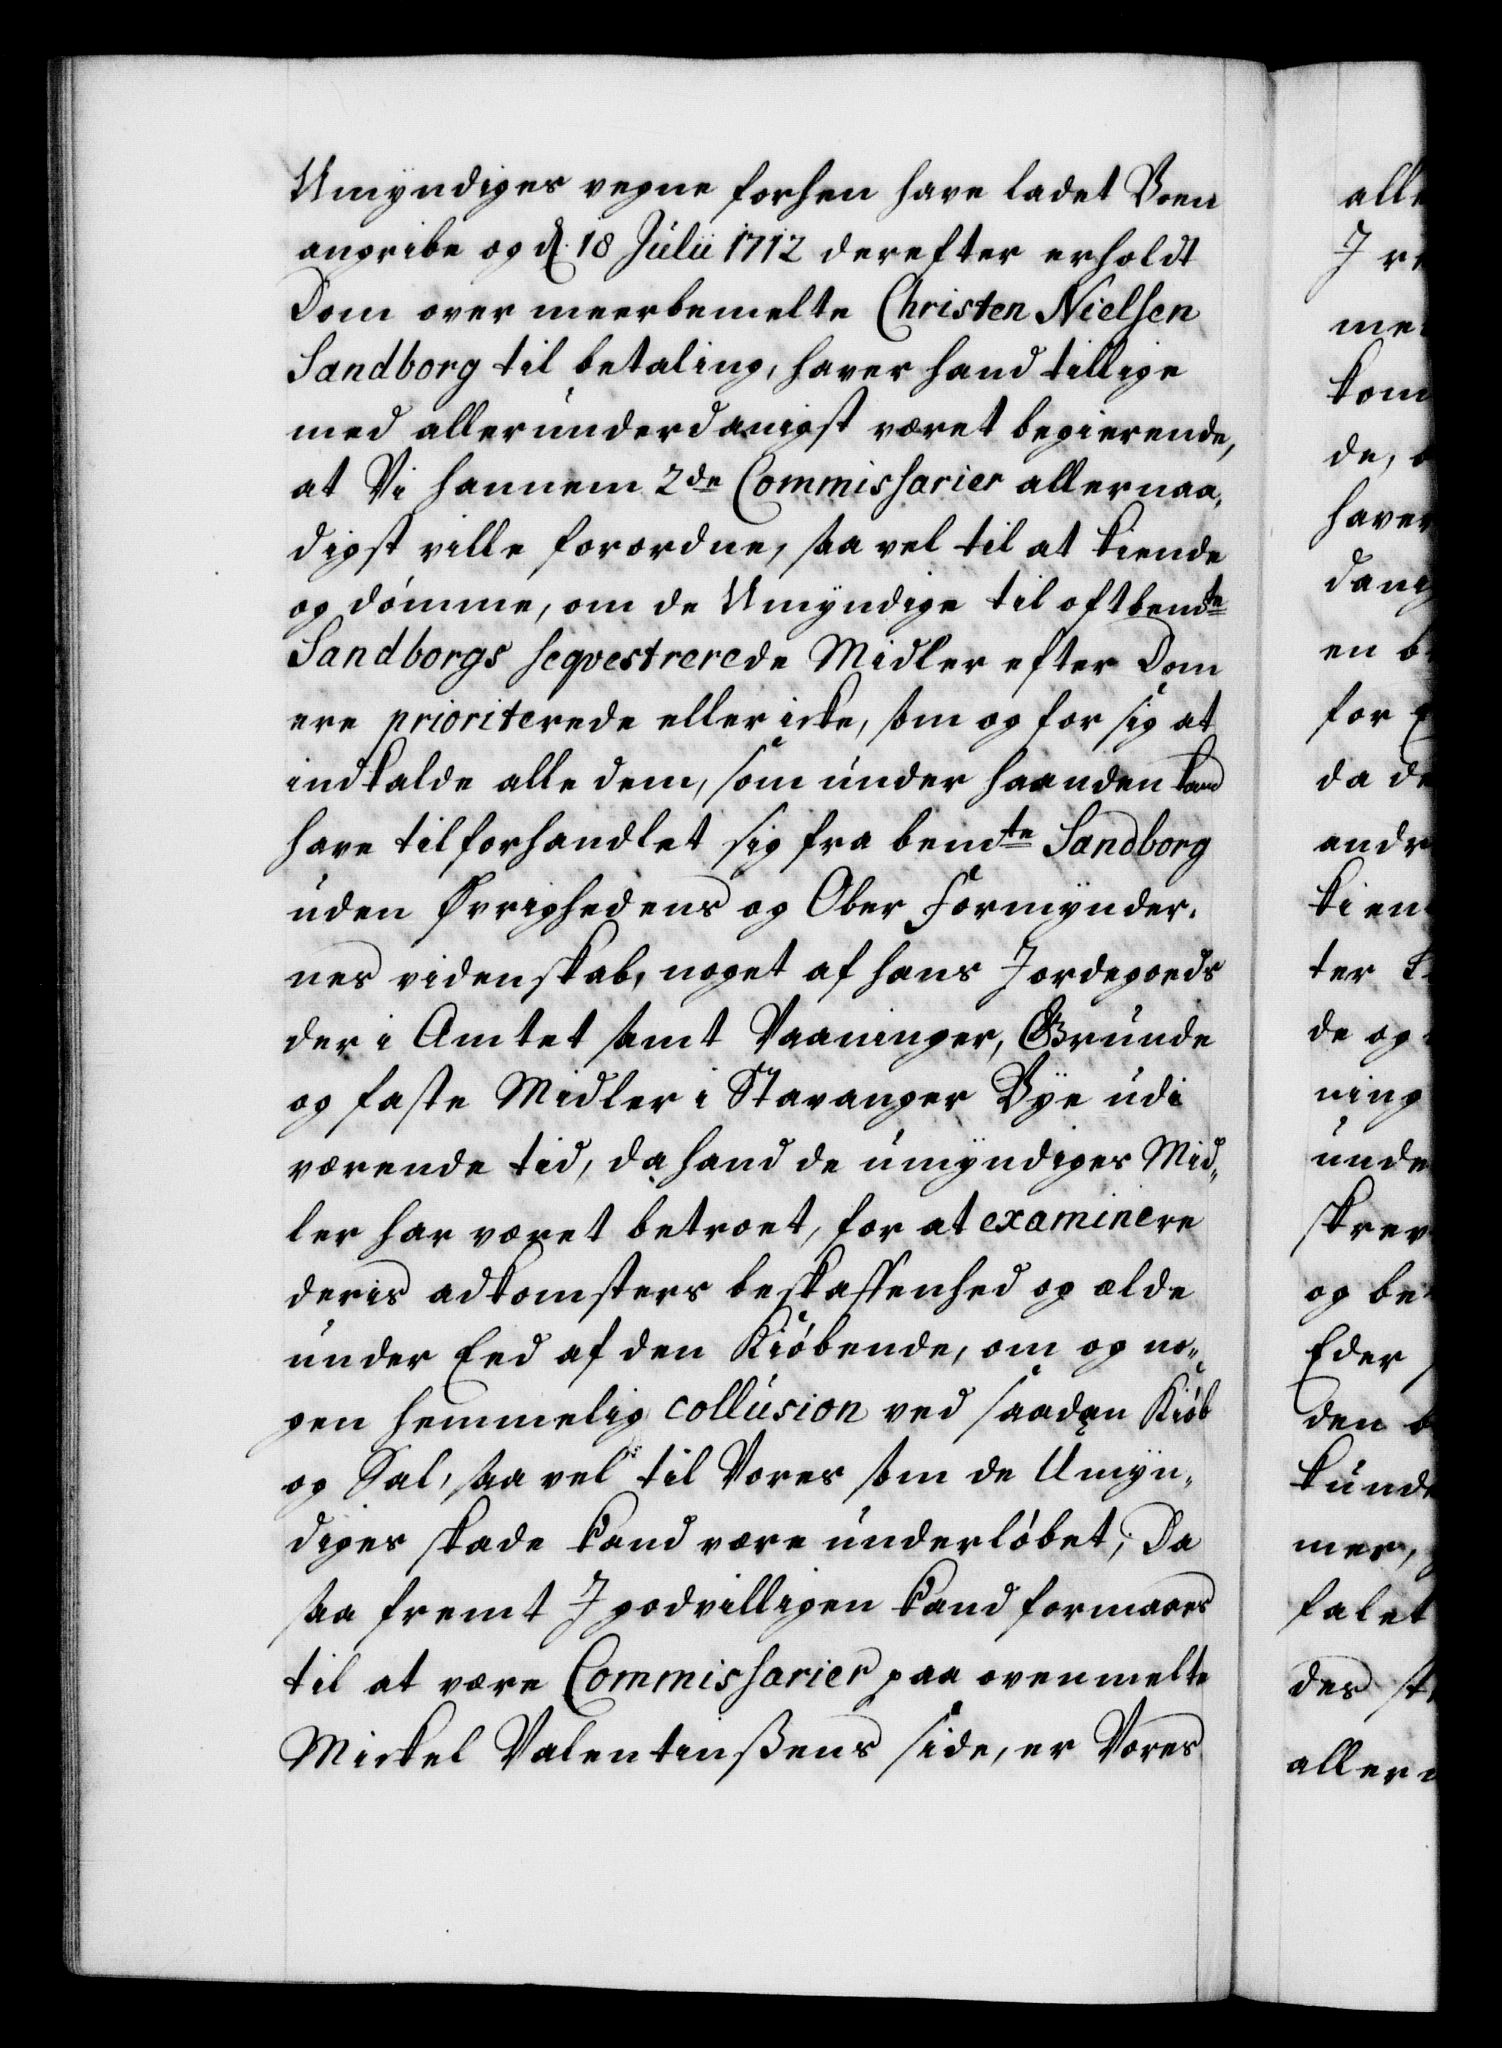 Umÿndiges vegne forhen have ladet Boen
angribe og d. 18 Julii 1712 derefter erholdt
Dom over meerbemelte Christen Nielsen
Sandborg til betaling, haver hand tillige
med allerunderdanigst været begierende,
at Vi hannem 2de Commissarier allernaa„
digst ville forordne, saa vel til at kiende
og dómme, om de Umÿndige til oftbemte
Sandborgs seqvestrerede Midler efter Dom
ere prioriterede eller icke, som og for sig at
indkalde alle dem, som under haanden kand
have tilforhandlet sig fra bemte Sandborg
uden Øvrighedens og Ober Formÿnder„
nes videnskab, noget af hans Jordegoeds
der i Amtet samt Vaaninger, Grunde
og faste Midler i Stavanger Bÿe udi
værende tid, da hand de umÿndiges Mid„
ler har været betroet, for at examinere
deris adkomsters beskaffenhed og ælde
under Eed af den Kióbende, om og no„
gen hemmelig collusion ved saadan Kiób
og Sal, saa vel til Vores som de Umÿn„
diges skade kand være underlóbet; Da
saa fremt I godvilligen kand formaaes
til at være Commissarier paa ovenmelte
Mickel Valentinßens side, er Vores
alle
me
kom
de,
haver
danig
en
for
da de
andr
kien
ter
de og
ning
unde
skrev
og be
Eder
den
kunde
mer,
falet
des
aller